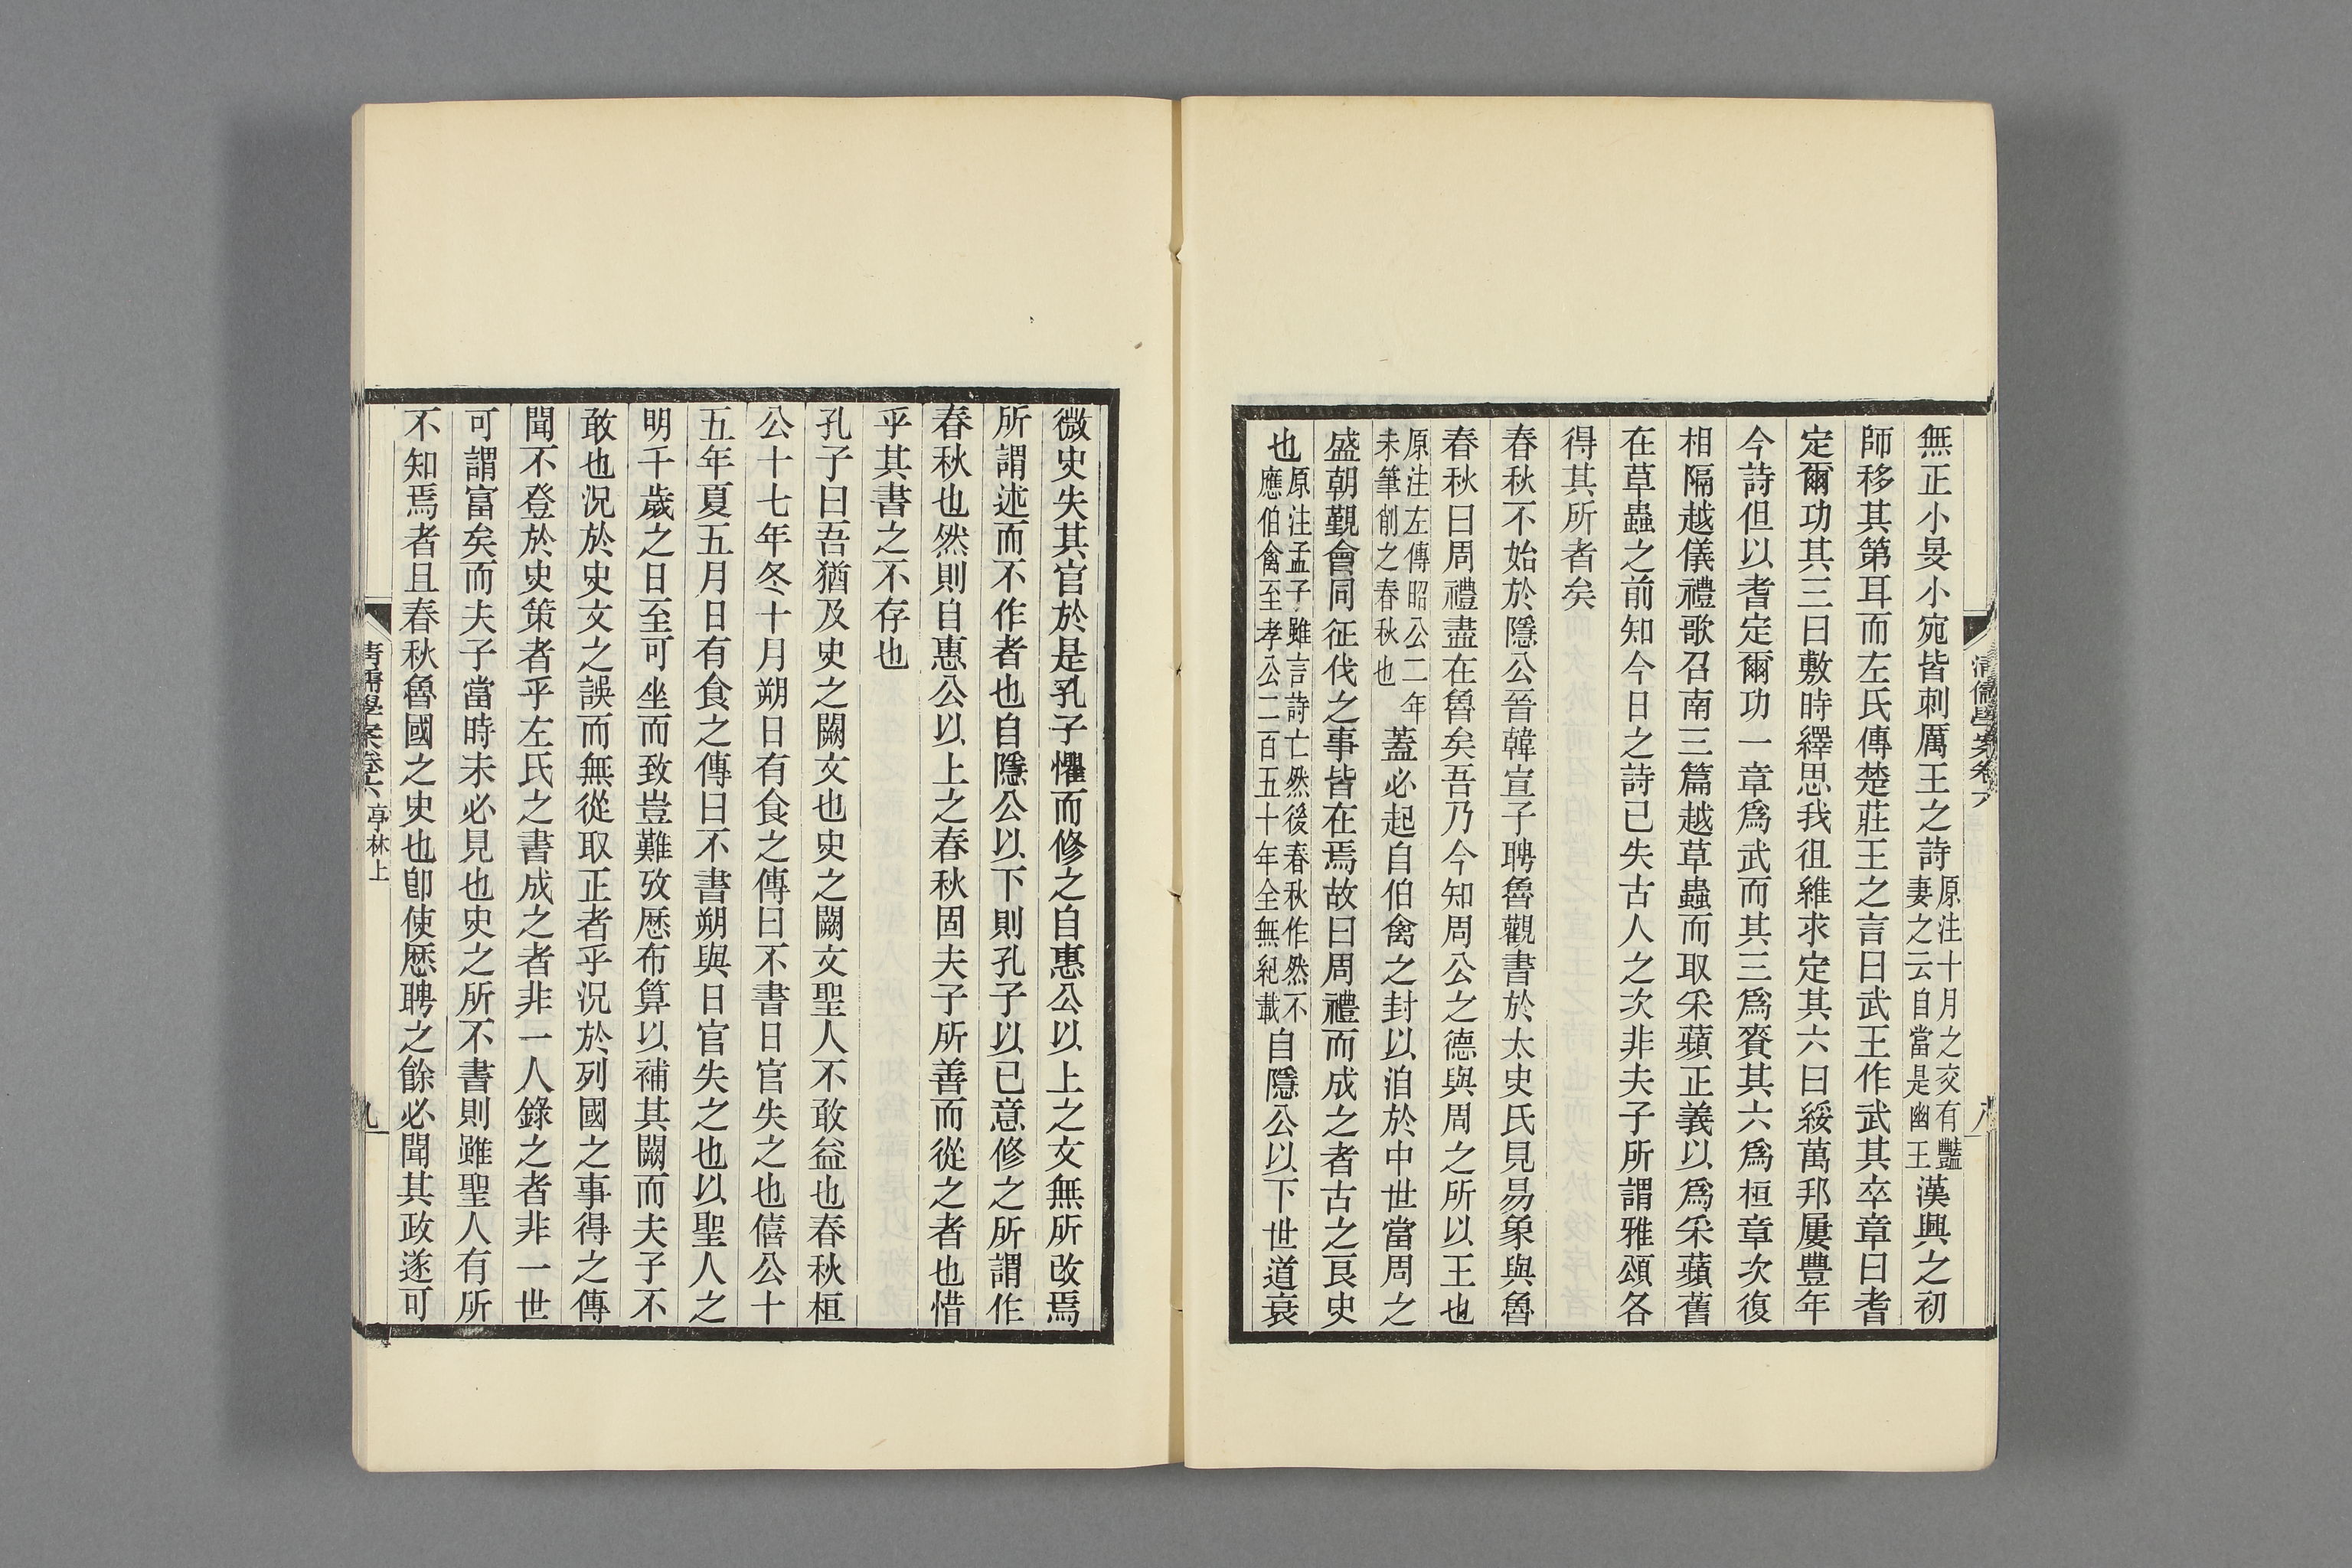 無正小旻小宛皆刺厲王之詩原注十月之交有豔妻之云自當是幽王漢興之初
師移其第耳而左氏傳楚莊王之言曰武王作武其卒章曰耆
定爾功其三曰敷時繹思我徂維求定其六曰綏萬邦屢豐年
今詩但以耆定爾功一章爲武而其三爲賚其六爲桓章次復
相隔越儀禮歌召南三篇越草蟲而取采蘋正義以爲采蘋舊
在草蟲之前知今日之詩已失古人之次非夫子所謂雅頌各
得其所者矣
春秋不始於隱公晉韓宣子聘魯觀書於太史氏見易象與魯
春秋曰周禮盡在魯矣吾乃今知周公之德與周之所以王也
原注左傳昭公二年未筆削之春秋也蓋必起自伯禽之封以洎於中世當周之
盛朝覲會同征伐之事皆在焉故曰周禮而成之者古之良史
也原注孟子雖言詩亡然後春秋作然不應伯禽至孝公二百五十年全無紀載自隱公以下世道衰
清儒學案卷六
八
微史失其官於是孔子懼而修之自惠公以上之文無所改焉
所謂述而不作者也自隱公以下則孔子以已意修之所謂作
春秋也然則自惠公以上之春秋固夫子所善而從之者也惜
乎其書之不存也
孔子曰吾猶及史之闕文也史之闕文聖人不敢益也春秋桓
公十七年冬十月朔日有食之傳曰不書日官失之也僖公十
五年夏五月日有食之傳曰不書朔與日官失之也以聖人之
明千歲之日至可坐而致豈難攷厯布算以補其闕而夫子不
敢也況於史文之誤而無從取正者乎況於列國之事得之傳
聞不登於史策者乎左氏之書成之者非一人錄之者非一世
可謂富矣而夫子當時未必見也史之所不書則雖聖人有所
不知焉者且春秋魯國之史也卽使厯聘之餘必聞其政遂可
清儒學案卷六 亭林上
九